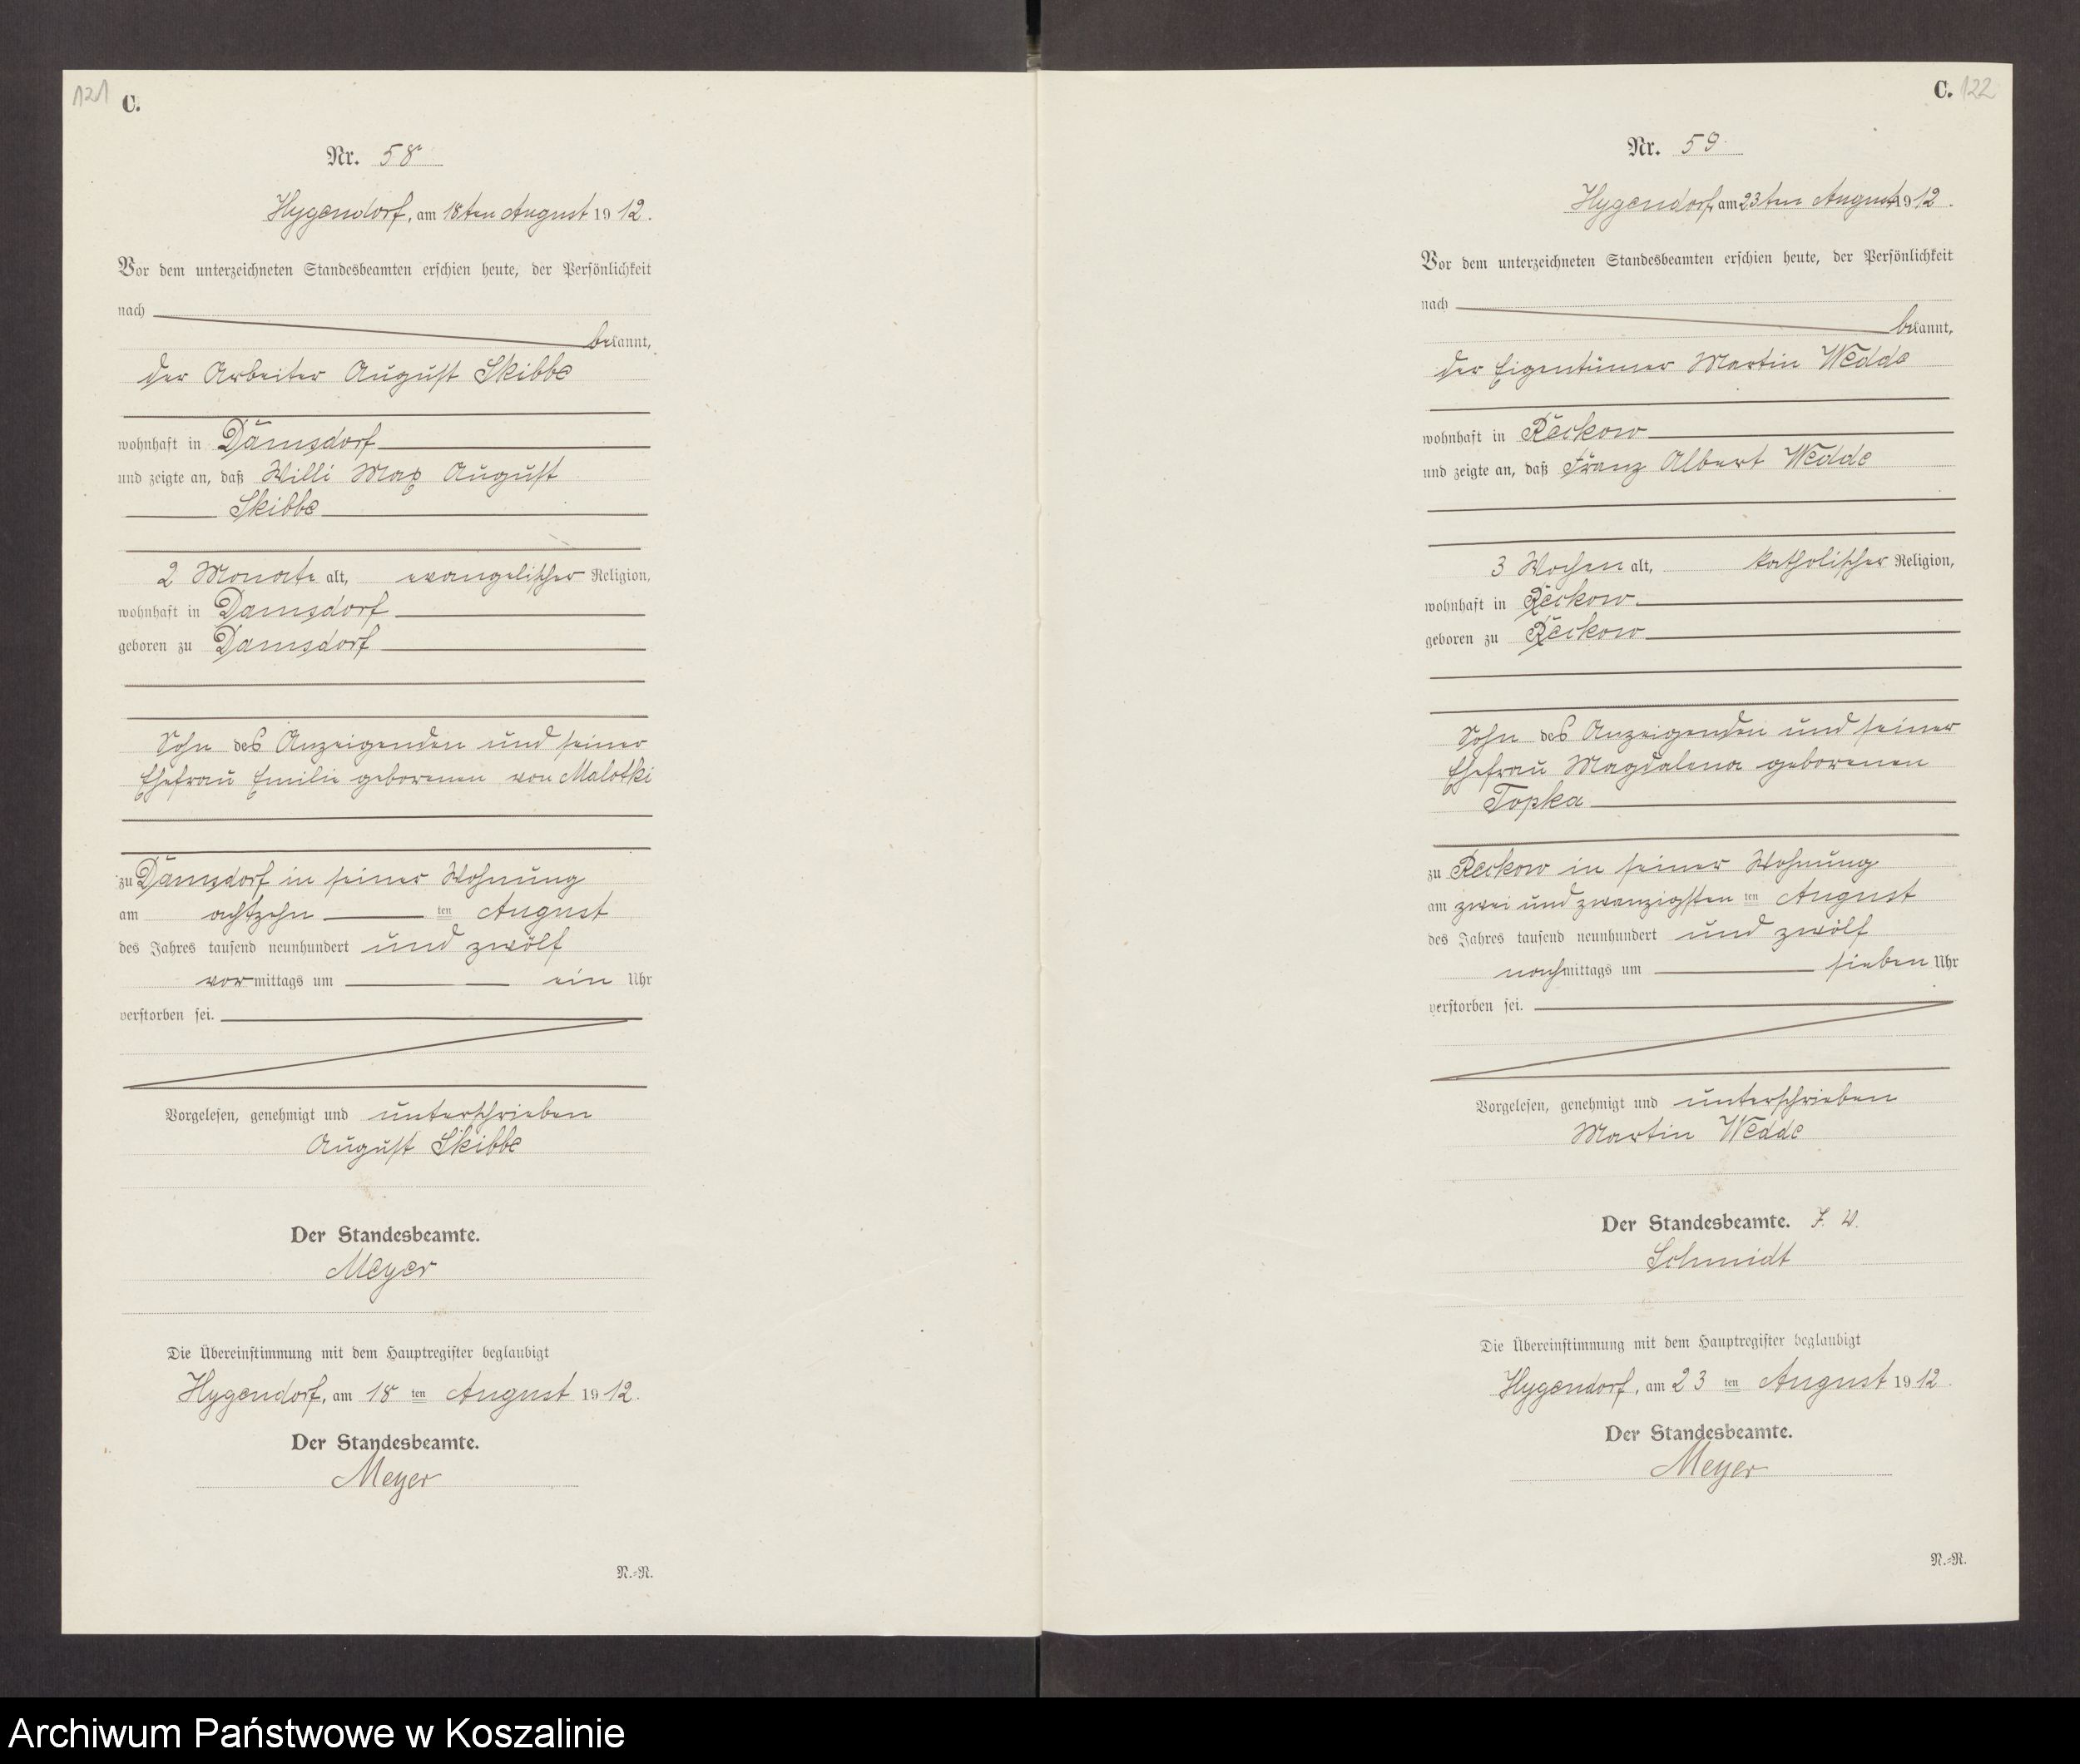 121 C.
Nr. 58
Hygendorf, am 18ten August 1912.
Vor dem unterzeichneten Standesbeamten erschien heute, der Persönlichkeit
nach
bekannt,
der Arbeiter August Skibbe
wohnhaft in Damsdorf
und zeigte an, daß Willi Max August
Skibbe
2 Monate alt, evangelischer Religion,
wohnhaft in Damsdorf
geboren zu Damsdorf
Sohn des Anzeigenden und seiner
Ehefrau Emilie geborenen von Malotki
zu Damsdorf in seiner Wohnung
am achtzehn ten August
des Jahres tausend neunhundert und zwölf
vormittags um ein Uhr
verstorben sei.
Vorgelesen, genehmigt und unterschrieben
August Skibbe
Der Standesbeamte.
Meyer
Die Übereinstimmung mit dem Hauptregister beglaubigt
Hygendorf, am 18 ten August 1912.
Der Standesbeamte.
Meyer
N.=N.
C. 122
Nr. 59
Hygendorf, am 23ten August 1912.
Vor dem unterzeichneten Standesbeamten erschien heute, der Persönlichkeit
nach
bekannt,
der Eigentümer Martin Wedde
wohnhaft in Reckow
und zeigte an, daß Franz Albert Wedde
3 Wochen alt, katholischer Religion,
wohnhaft in Reckow
geboren zu Reckow
Sohn des Anzeigenden und seiner
Ehefrau Magdalena geborenen
Topka
zu Reckow in seiner Wohnung
am zwei und zwanzigsten ten August
des Jahres tausend neunhundert und zwölf
nachmittags um sieben Uhr
verstorben sei.
Vorgelesen, genehmigt und unterschrieben
Martin Wedde
Der Standesbeamte. J. V.
Schmidt
Die Übereinstimmung mit dem Hauptregister beglaubigt
Hygendorf, am 23 ten August 1912.
Der Standesbeamte.
Meyer
N.=N.
Archiwum Państwowe w Koszalinie